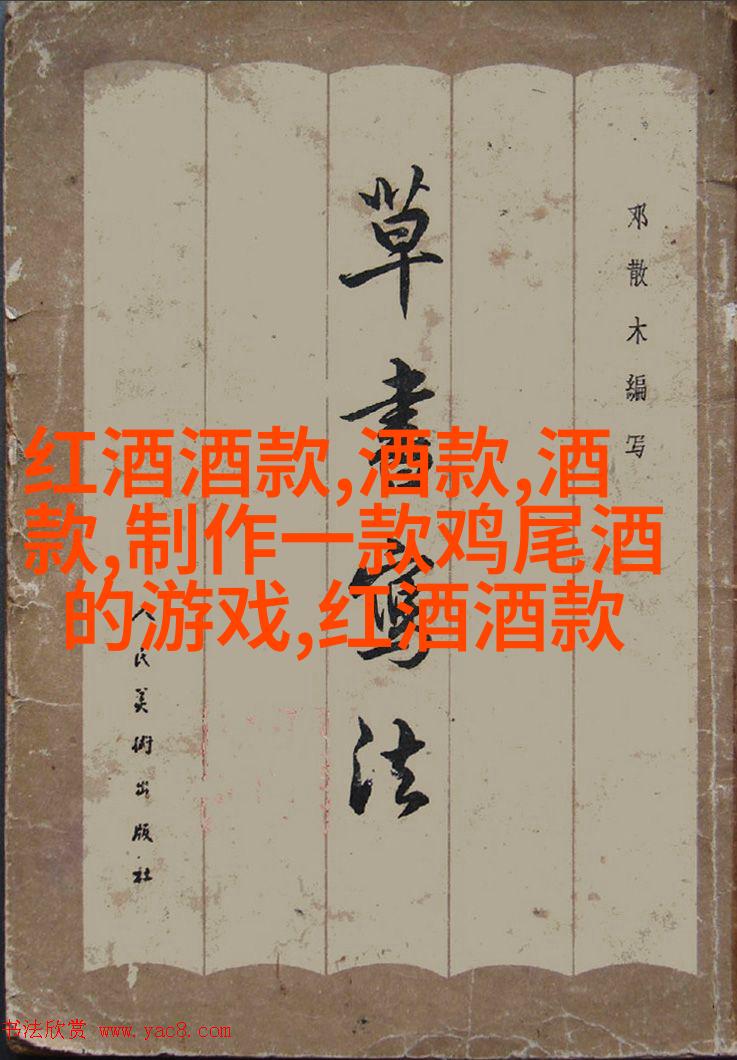 草書寫法
邓散木編写
人民美術出版社
红酒酒款,酒款,酒
款,制作一款鸡尾酒
的游戏,红酒酒款
书法欣赏 www.yac8.com